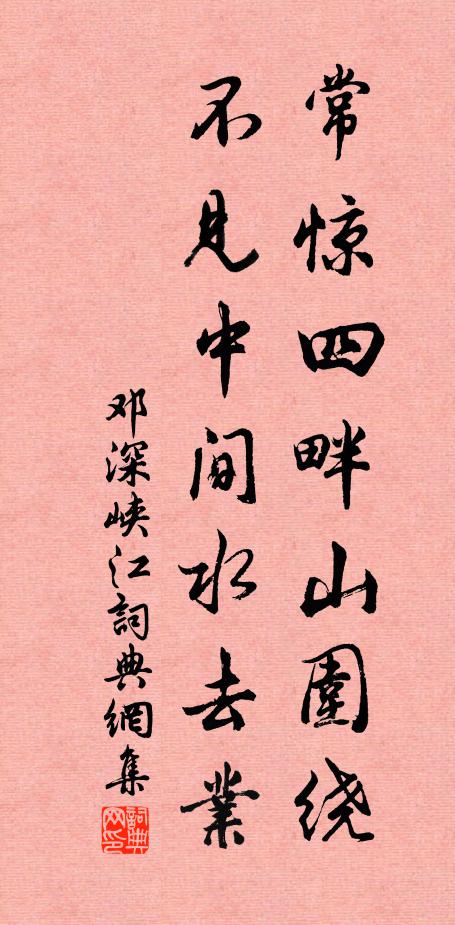 常惊四畔山圍绕
不见中间水去業
邓深峡江詞典網集
詞典网印